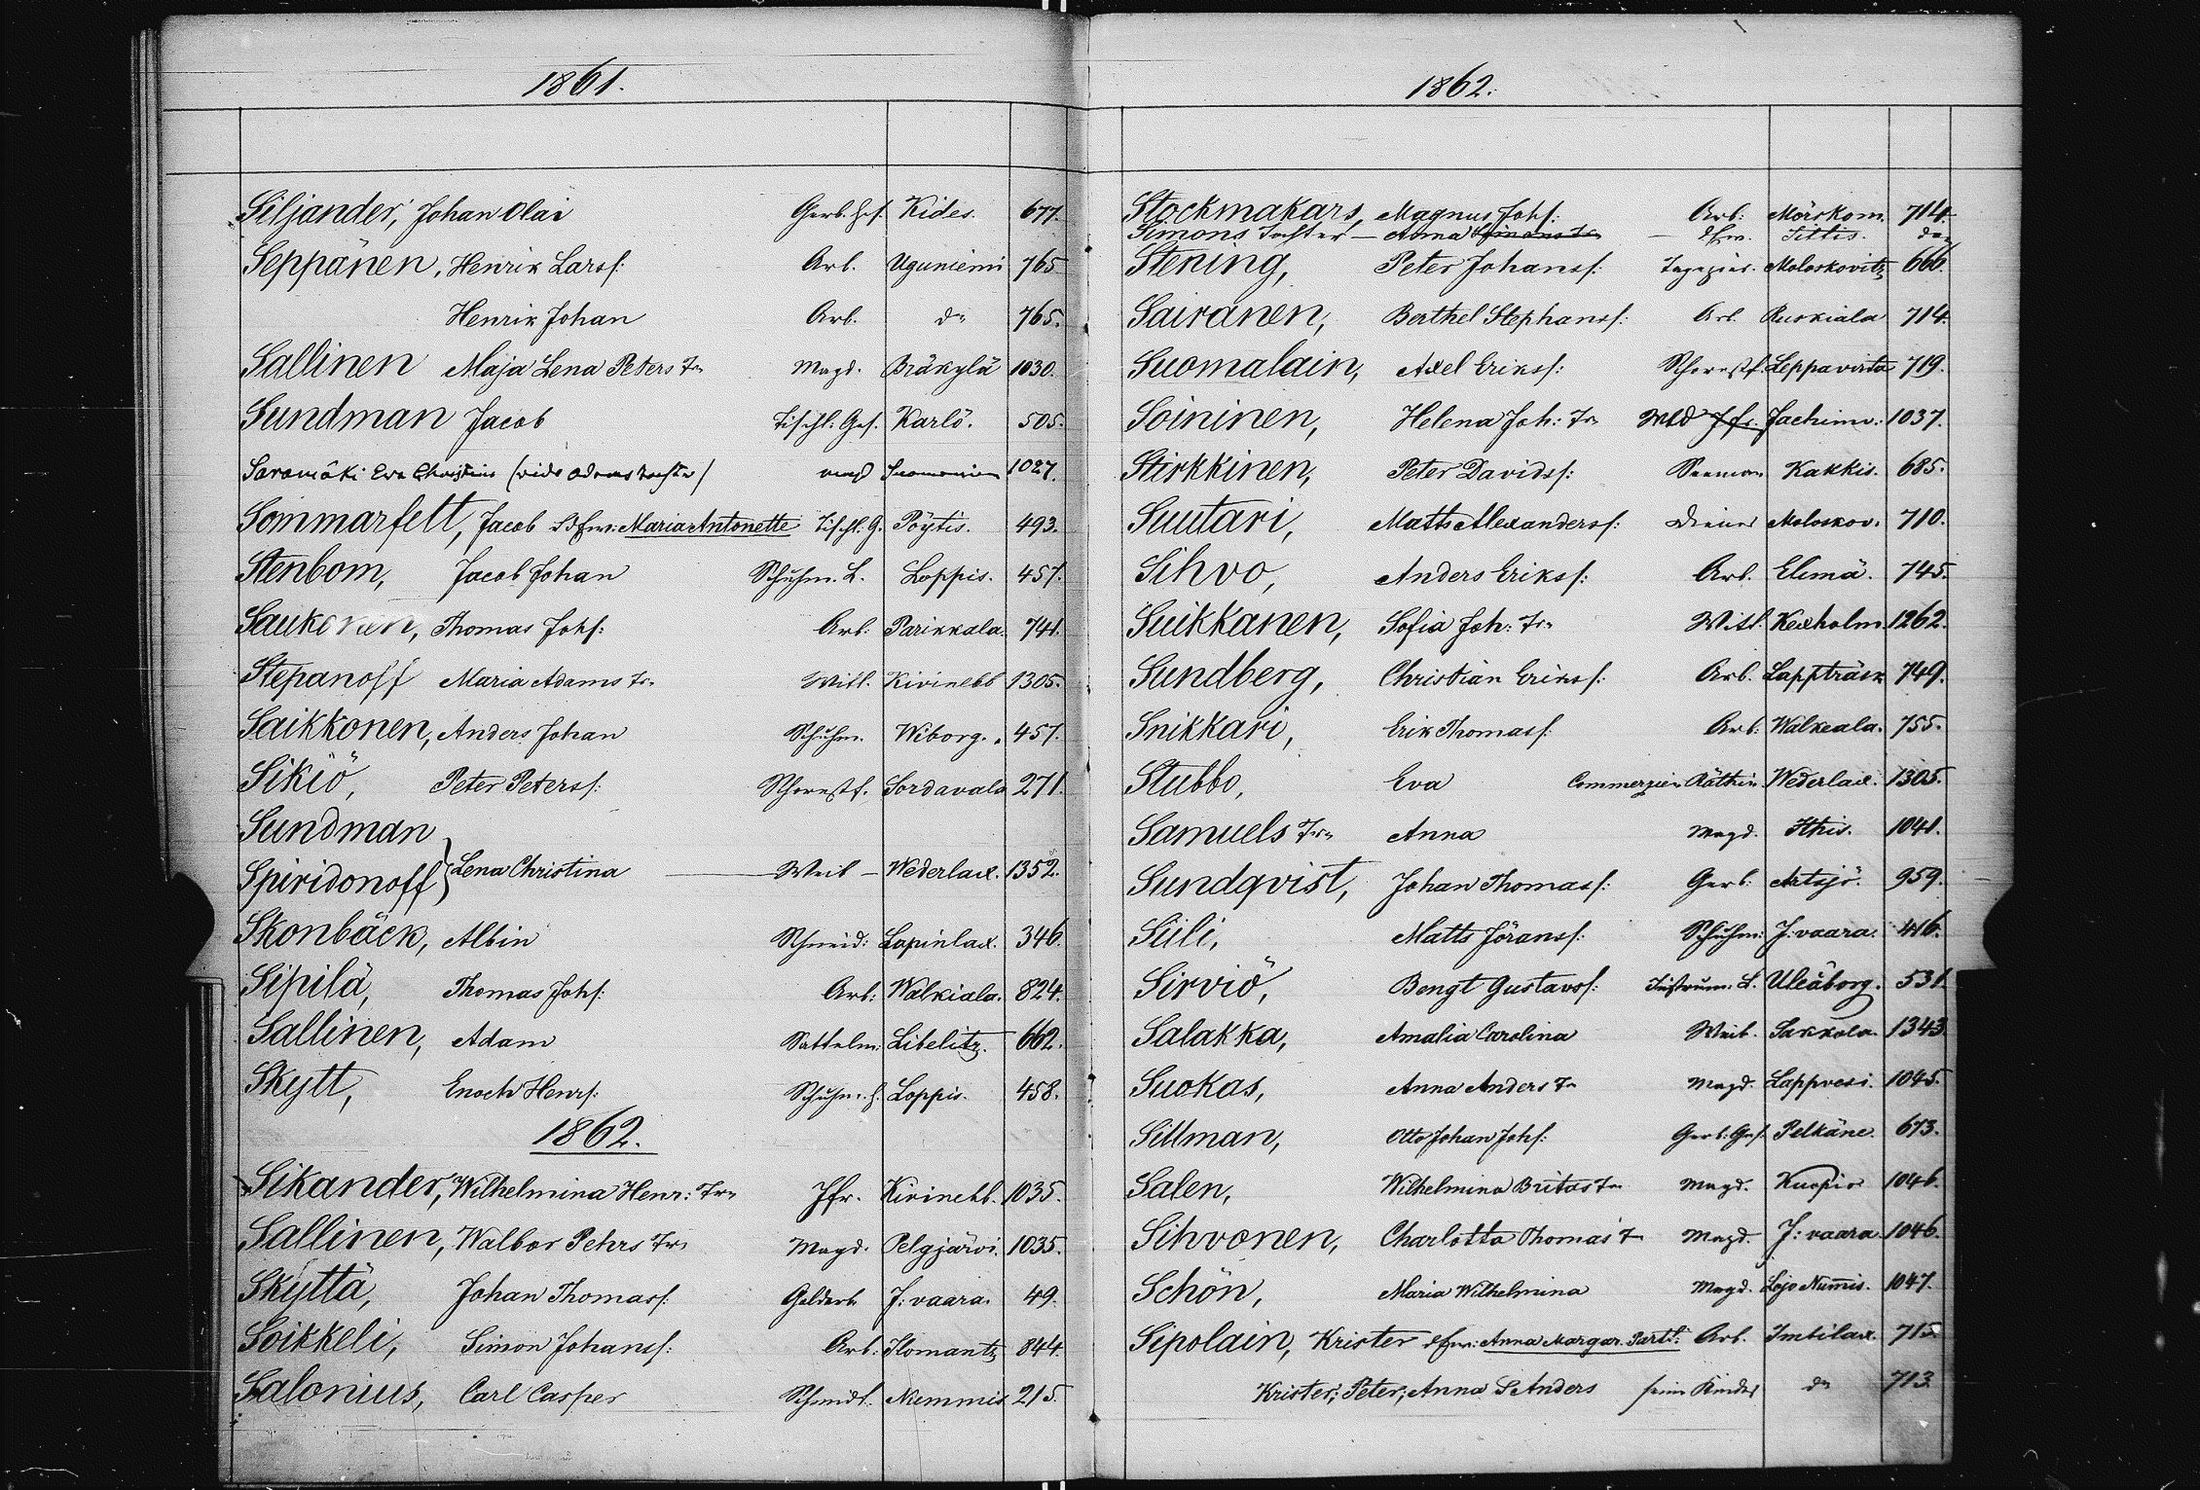 1861.
Siljander, Johan Olai Gerb. Ges. Kides. 677.
Seppänen, Henrik Larsf: Arb. Uguniemi 765
Henrik Johan Arb. do 765.
Sallinen Maja Lena Peters Tr Magd. Bräkylä 1030.
Sundman Jacob Tischl. Ges. Karlö. 505.
Saramäki Eva Christina (vide Adamstochter) Magd 1027.
Sommarfelt, Jacob & Efrw: Maria Antonette Tischl. G. Pöytis. 493.
Stenbom, Jacob Johan Schuhm. L. Loppis. 457.
Saukonen, Thomas Johs: Arb. Parikkala 741.
Stepanoff Maria Adams Tr. Witt. Kivinebb 1305.
Saikkonen, Anders Johan Schuhm. Wiborg. 457.
Sikiö, Peter Petersf: Schornstf. Sordavala 271.
Sundman
Spiridonoff } Lena Christina Weib Wederlax. 1352.
Skonbäck, Albin Schneid: Lapinlax. 346.
Sipilä, Thomas Johs: Arb: Walkiala. 824.
Sallinen, Adam Sattelm: Libelitz. 662.
Skytt, Enoch Henrs: Schuhm. G. Loppis. 458.
1862.
Sikander, Wilhelmina Henr: Tr Jfr. Kivinebb. 1035.
Sallinen, Walbor Pehrs Tr Magd. Pelgjärvi. 1035.
Skyttä, Johan Thomasf: Goldarb. J: vaara. 49.
Soikkeli, Simon Johansf: Arb: Ilomantz 844.
Salonius, Carl Casper Schmidt. Nummis 215.
1862.
Stockmakars, Magnus Johs: Arb: Mörskom. 714.
Simons Tochter — Anna Simons Tr — Efrw. Sittis. do
Stening, Peter Johansf: Tapezier. Moloskovitz 666.
Sairanen, Berthel Stephansf: Arb. Ruskiala 714.
Suomalain, Axel Eriksf: Schornstf. Leppavirta 719.
Soininen, Helena Joh: Tr Mgd Jfr. Jachimv: 1037.
Stirkkinen, Peter Davidsf: Seeman Kakkis. 685.
Suutari, Matts Alexandersf: Diener Moloskov. 710.
Sihvo, Anders Eriksf: Arb. Elimä. 745.
Suikkanen, Sofia Joh: Tr Witt. Kexholm. 1262.
Sundberg, Christian Eriksf: Arb. Lappträsk 749.
Snikkari, Erik Thomasf: Arb: Walkeala. 755.
Stubbo, Eva Commerzien Räthin. Wederlax. 1305.
Samuels Tr Anna Magd. Ithis. 1041.
Sundqvist, Johan Thomasf: Gerb: Artsjö. 959.
Siili, Matts Göransf: Schuhm: J: vaara. 416.
Sirviö, Bengt Gustavsf: Instrum. L. Uleåborg. 531
Salakka, Amalia Carolina Weib. Sakkola. 1343
Suokas, Anna Anders Tr Magd. Lappvesi. 1045.
Sillman, Otto Johan Johs: Gerb: Ges. Pelkäne. 673.
Salen, Wilhelmina Britas Tr Magd. Kuopio 1046.
Sihvonen, Charlotta Thomas T Magd. J: vaara 1046.
Schön, Maria Wilhelmina Magd. Lojo Nummis. 1047.
Sipolain, Krister Efrw: Anna Margar. Partt: Arb. Imbilax. 715.
Krister; Peter; Anna & Anders seine Kinder do 713.